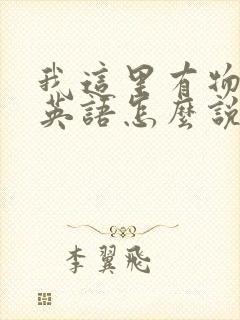 我這里有物
英語怎麽說
李翼飛